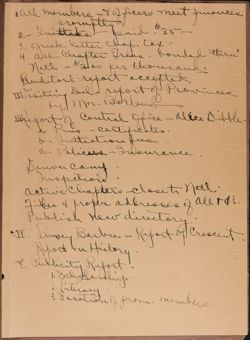 All members & officers meet finances
promptly.
2 - Initiates - Paid - $25 -
3. Check Letter Chap. Tax.
4. All Chapter Treas. Bonded thru
Natl - $2.00 per thousand.
Auditor's report accepted
II Visiting Del. report of Provinces
by Mrs.
III Report of Central Office - Alice Dibble.
a. Pins - certificates.
b. Initiation fees
c. Insurance.
Inspection.
Active Chapters - closets Natl.
Files & proper addresses of all
Publish new directory.
IV Barber - Report of Crescent.
Report on History.
V Publicity Report.
1. Scholarship
2. Literary
3. Donation of prom. members.